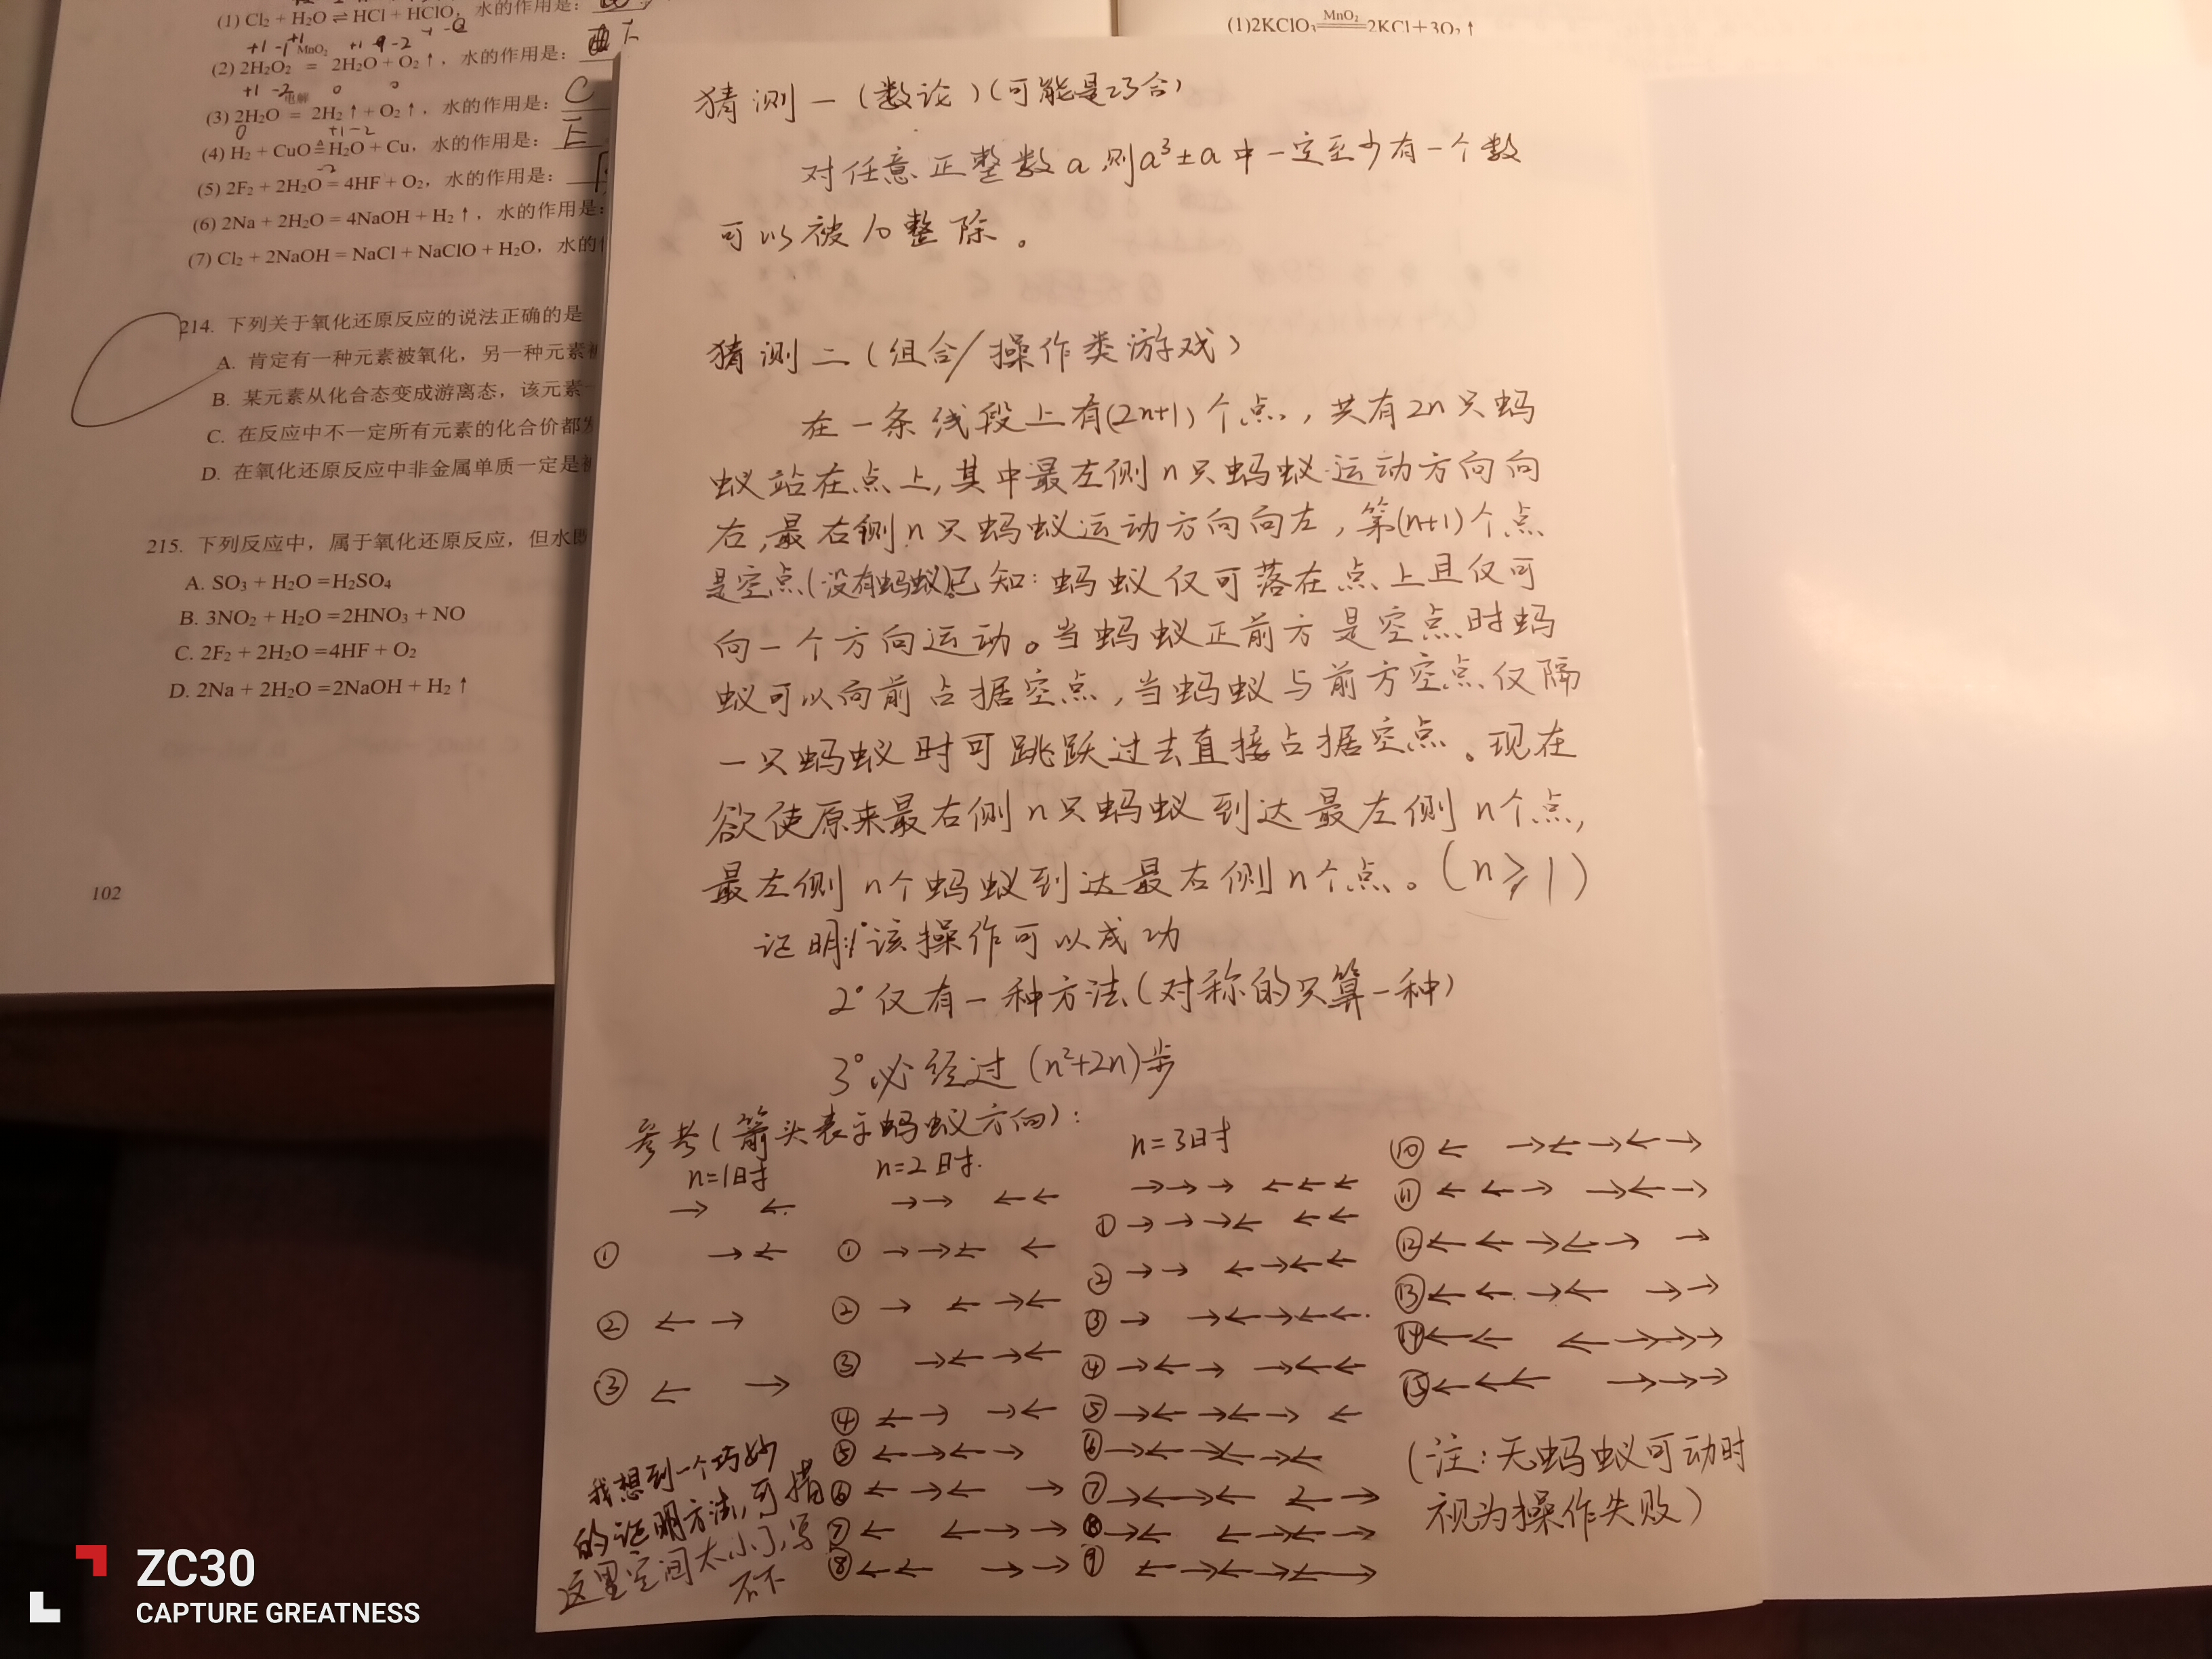 (1) Cl₂ + H₂O ⇌ HCl + HClO，水的作用是：
+1 -1 MnO₂ +1 -2
(2) 2H₂O₂ = 2H₂O + O₂↑，水的作用是：
+1 -2 电解 0 0
(3) 2H₂O = 2H₂↑ + O₂↑，水的作用是： C
0 +1 -2
(4) H₂ + CuO ≜ H₂O + Cu，水的作用是： E
-2
(5) 2F₂ + 2H₂O = 4HF + O₂，水的作用是：
(6) 2Na + 2H₂O = 4NaOH + H₂↑，水的作用是：
(7) Cl₂ + 2NaOH = NaCl + NaClO + H₂O，水的
214. 下列关于氧化还原反应的说法正确的是
A. 肯定有一种元素被氧化，另一种元素
B. 某元素从化合态变成游离态，该元素
C. 在反应中不一定所有元素的化合价都
D. 在氧化还原反应中非金属单质一定是
215. 下列反应中，属于氧化还原反应，但水
A. SO₃ + H₂O =H₂SO₄
B. 3NO₂ + H₂O =2HNO₃ + NO
C. 2F₂ + 2H₂O =4HF + O₂
D. 2Na + 2H₂O =2NaOH + H₂↑
102
MnO₂
(1)2KClO₃══2KCl+3O₂↑
猜测一（数论）（可能是巧合）
对任意正整数a,则a³±a中一定至少有一个数
可以被10整除。
猜测二（组合/操作类游戏）
在一条线段上有(2n+1)个点，共有2n只蚂
蚁站在点上，其中最左侧n只蚂蚁运动方向向
右，最右侧n只蚂蚁运动方向向左，第(n+1)个点
是空点(没有蚂蚁)已知：蚂蚁仅可落在点上且仅可
向一个方向运动。当蚂蚁正前方是空点时蚂
蚁可以向前占据空点，当蚂蚁与前方空点仅隔
一只蚂蚁时可跳跃过去直接占据空点。现在
欲使原来最右侧n只蚂蚁到达最左侧n个点，
最左侧n个蚂蚁到达最右侧n个点。（n⩾1）
证明:1°该操作可以成功
2°仅有一种方法（对称的只算一种）
3°必经过(n²+2n)步
参考（箭头表示蚂蚁方向）：
n=1时
→ ←
① →←
② ←→
③ ← →
n=2时.
→→ ←←
① →→← ←
② → ←→←
③ →←→←
④ ←→ →←
⑤ ←→←→
⑥ ←→← →
⑦ ← ←→→
⑧ ←← →→
n=3时
→→→ ←←←
① →→→← ←←
② →→ ←→←←
③ → →←→←←
④ →←→ →←←
⑤ →←→←→ ←
⑥ →←→←→←
⑦ →←→← ←→
⑧ →← ←→←→
⑨ ←→←→←→
⑩ ← →←→←→
⑪ ←←→ →←→
⑫ ←←→←→ →
⑬ ←←→← →→
⑭ ←← ←→→→
⑮ ←←← →→→
（注：无蚂蚁可动时
视为操作失败）
我想到一个巧妙
的证明方法，可惜
这里空间太小了，写
不下
ZC30
CAPTURE GREATNESS